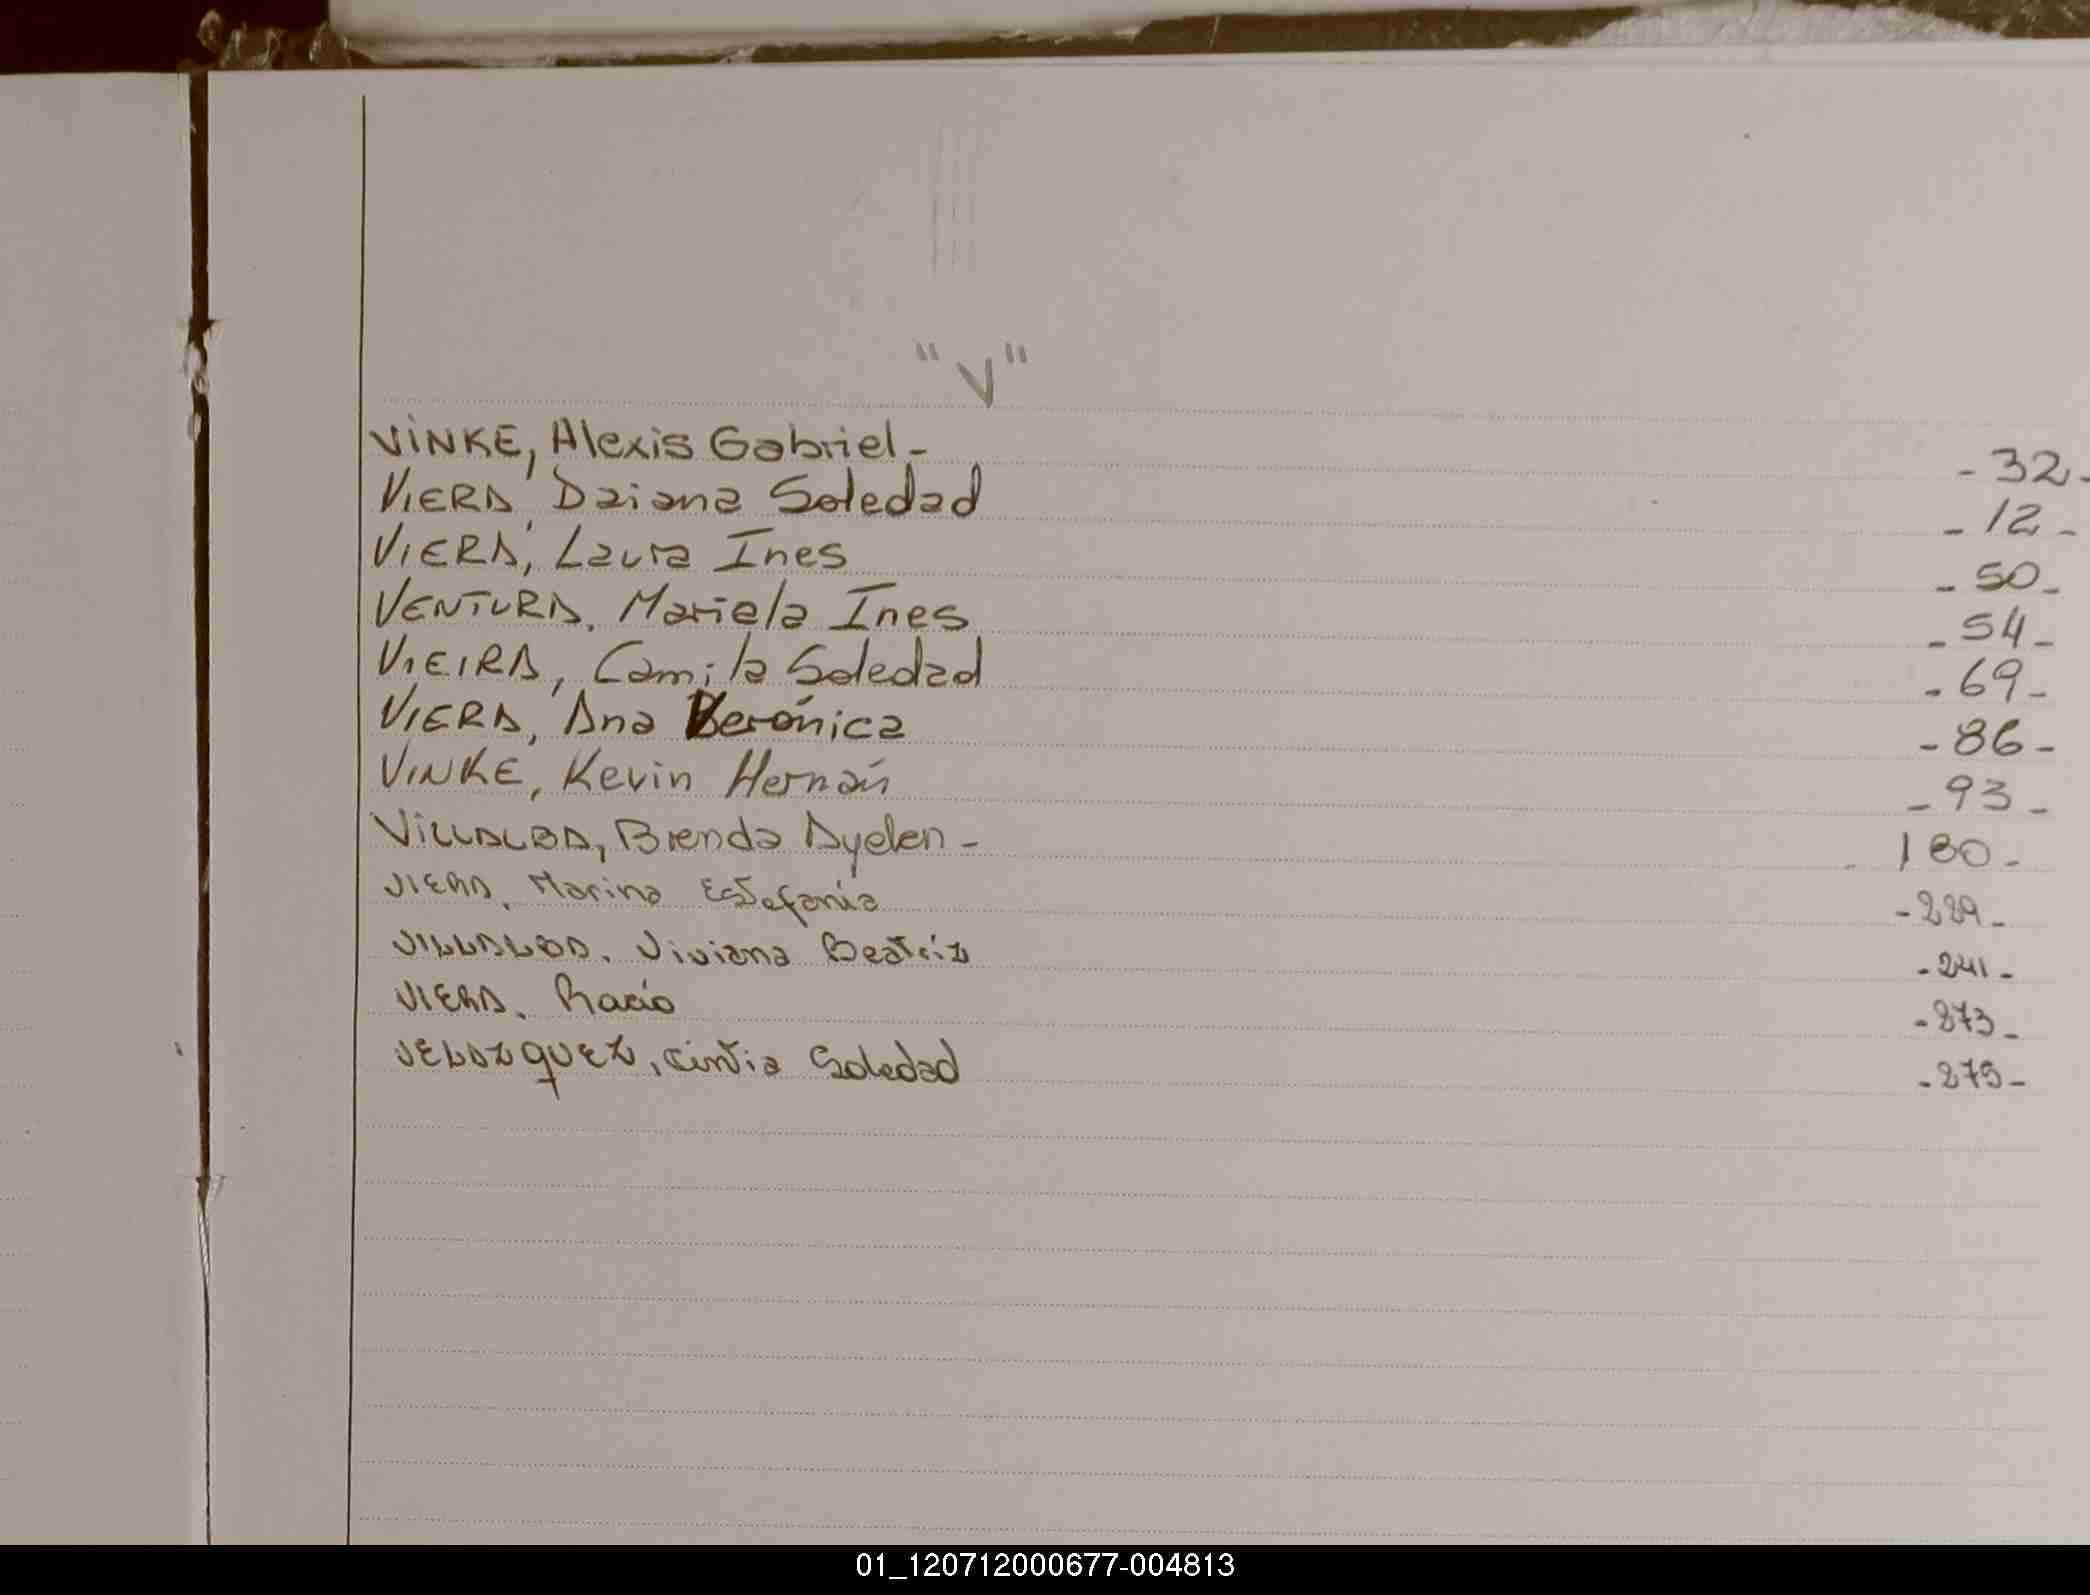 "V"
VINKE, Alexis Gabriel - - 32 -
VIERA, Daiana Soledad - 12 -
VIERA, Laura Ines - 50 -
VENTURA, Mariela Ines - 54 -
VIEIRA, Camila Soledad - 69 -
VIERA, Ana Verónica - 86 -
VINKE, Kevin Hernán - 93 -
VILLALBA, Brenda Ayelen - - 180 -
VIERA, Marina Estefania - 229 -
VILLALBA, Viviana Beatriz - 241 -
VIERA, Rocio - 273 -
VELAZQUEZ, Cintia Soledad - 275 -
01_120712000677-004813